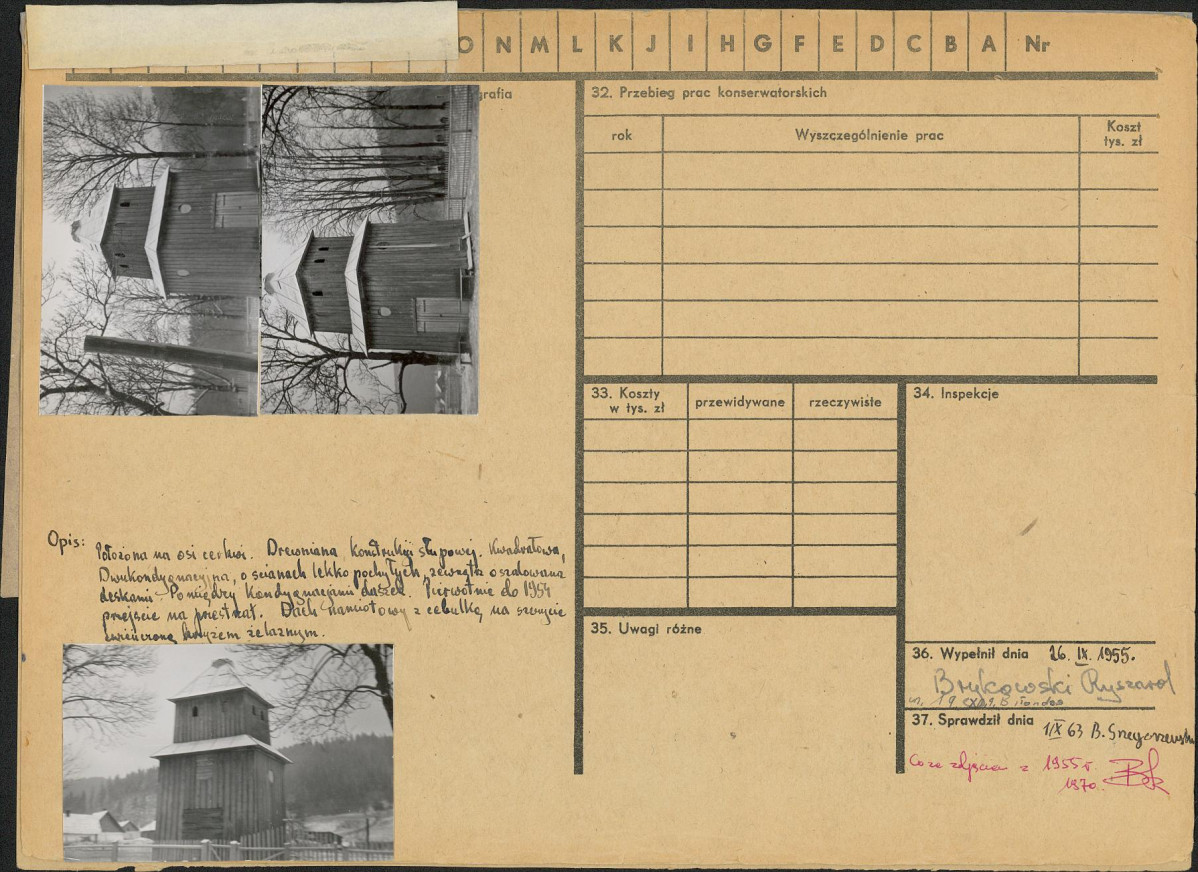 O N M L K J I H G F E D C B A Nr
grafia
32. Przebieg prac konserwatorskich
rok
Wyszczególnienie prac
Koszt tys. zł
33. Koszty w tys. zł
przewidywane
rzeczywiste
34. Inspekcje
Opis:
Położona na osi cerkwi. Drewniana, konstrukcji słupowej. Kwadratowa,
Dwukondygnacyjna, o ścianach lekko pochyłych, zewnątrz oszalowana
deskami. Pomiędzy kondygnacjami daszek. Pierwotnie do 1954
przejście na przestrzał. Dach namiotowy z cebulką na szczycie
zwieńczoną krzyżem żelaznym.
35. Uwagi różne
36. Wypełnił dnia 26.IX.1955.
Brykowski Ryszard
37. Sprawdził dnia 1/X 63 B.
z 1955 r.
1970.